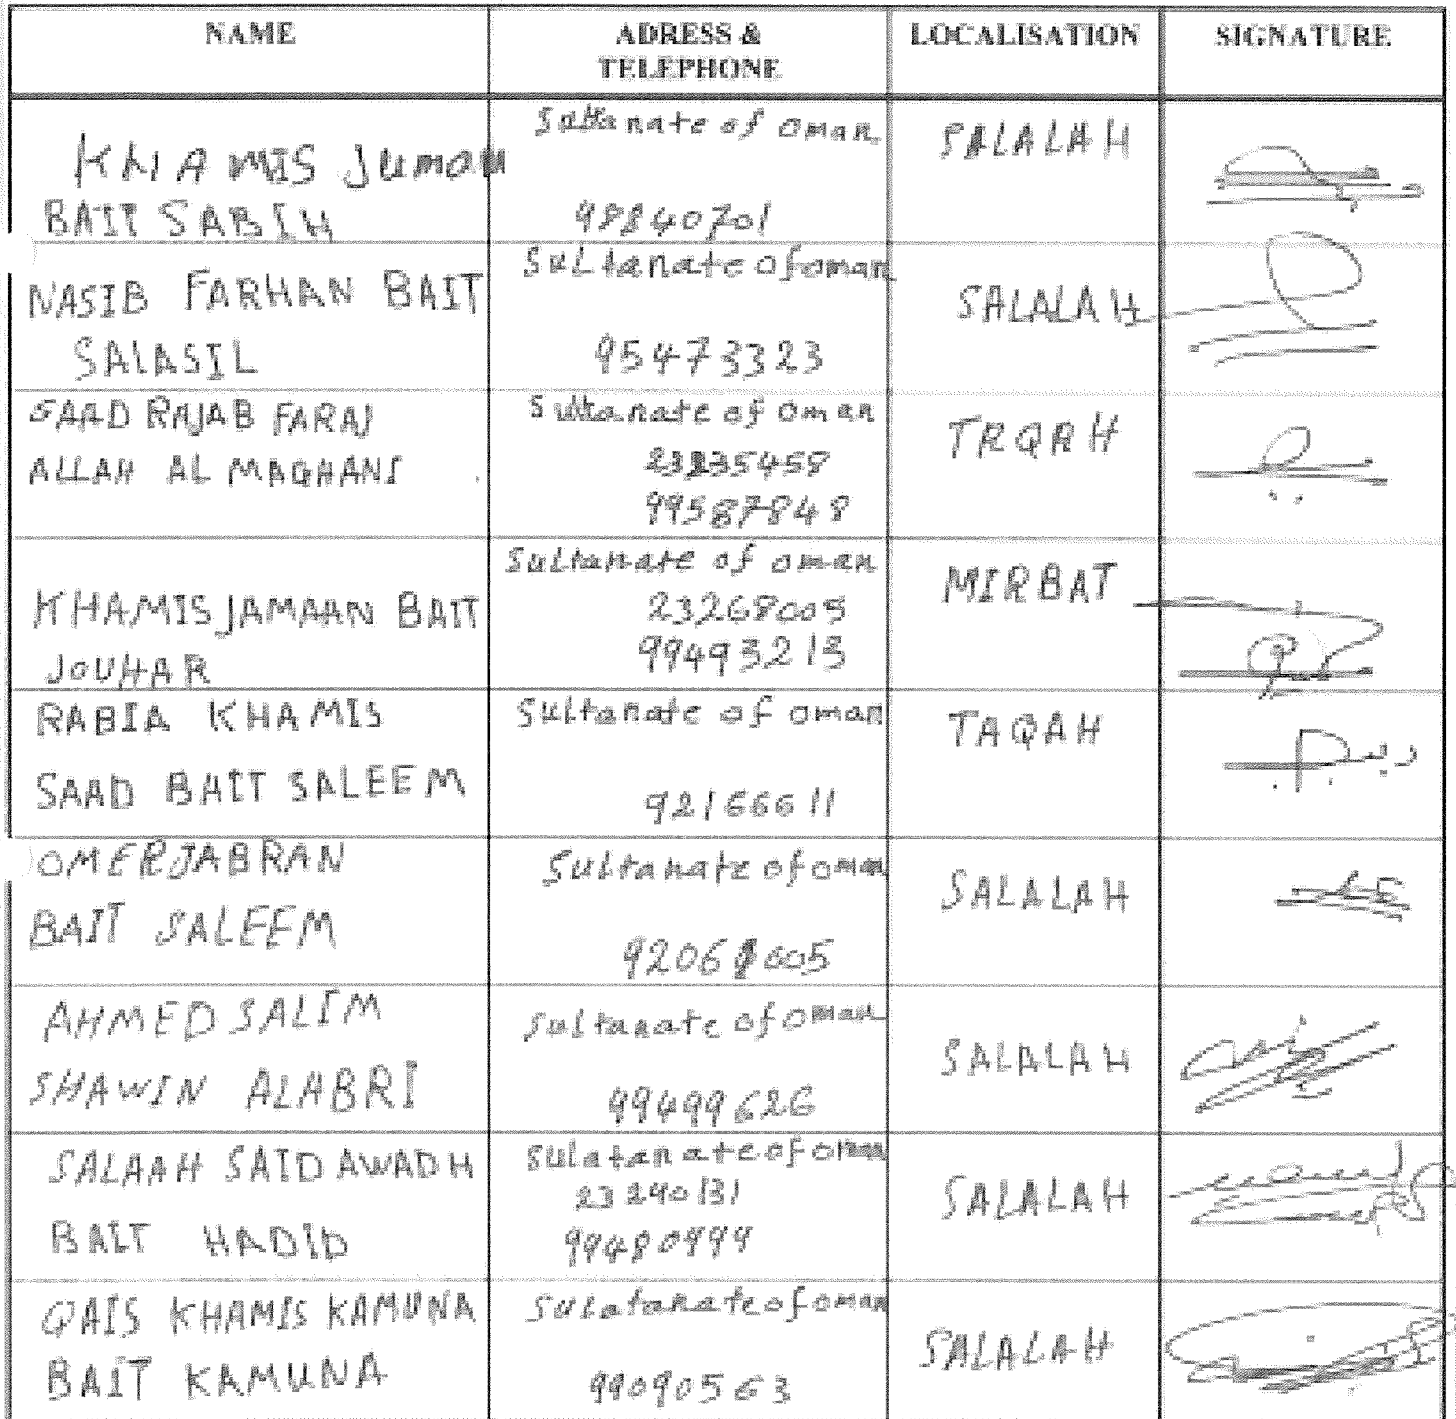 NAME
ADRESS &
TELEPHONE
LOCALISATION
SIGNATURE
KHAMIS Jumaa
BAIT SABIH
Sultanate of oman
99840701
SALALAH
NASIB FARHAN BAIT
SALASIL
Sultanate of oman
95473323
SALALAH
SAAD RAJAB FARAJ
ALLAH AL MAQHANI
Sultanate of oman
23235458
99587848
TAQAH
KHAMIS JAMAAN BAIT
JOUHAR
Sultanate of oman
23268005
99493213
MIRBAT
RABIA KHAMIS
SAAD BAIT SALEEM
Sultanate of oman
92166611
TAQAH
OMER JABRAN
BAIT SALEEM
Sultanate of oman
SALALAH
AHMED SALIM
SHAWIN ALABRI
Sultanate of oman
99499626
SALALAH
SALAAH SAID AWADH
BAIT HADID
Sulatanate of oman
23240131
SALALAH
QAIS KHAMIS KAMUNA
BAIT KAMUNA
Sulatanate of oman
99090563
SALALAH